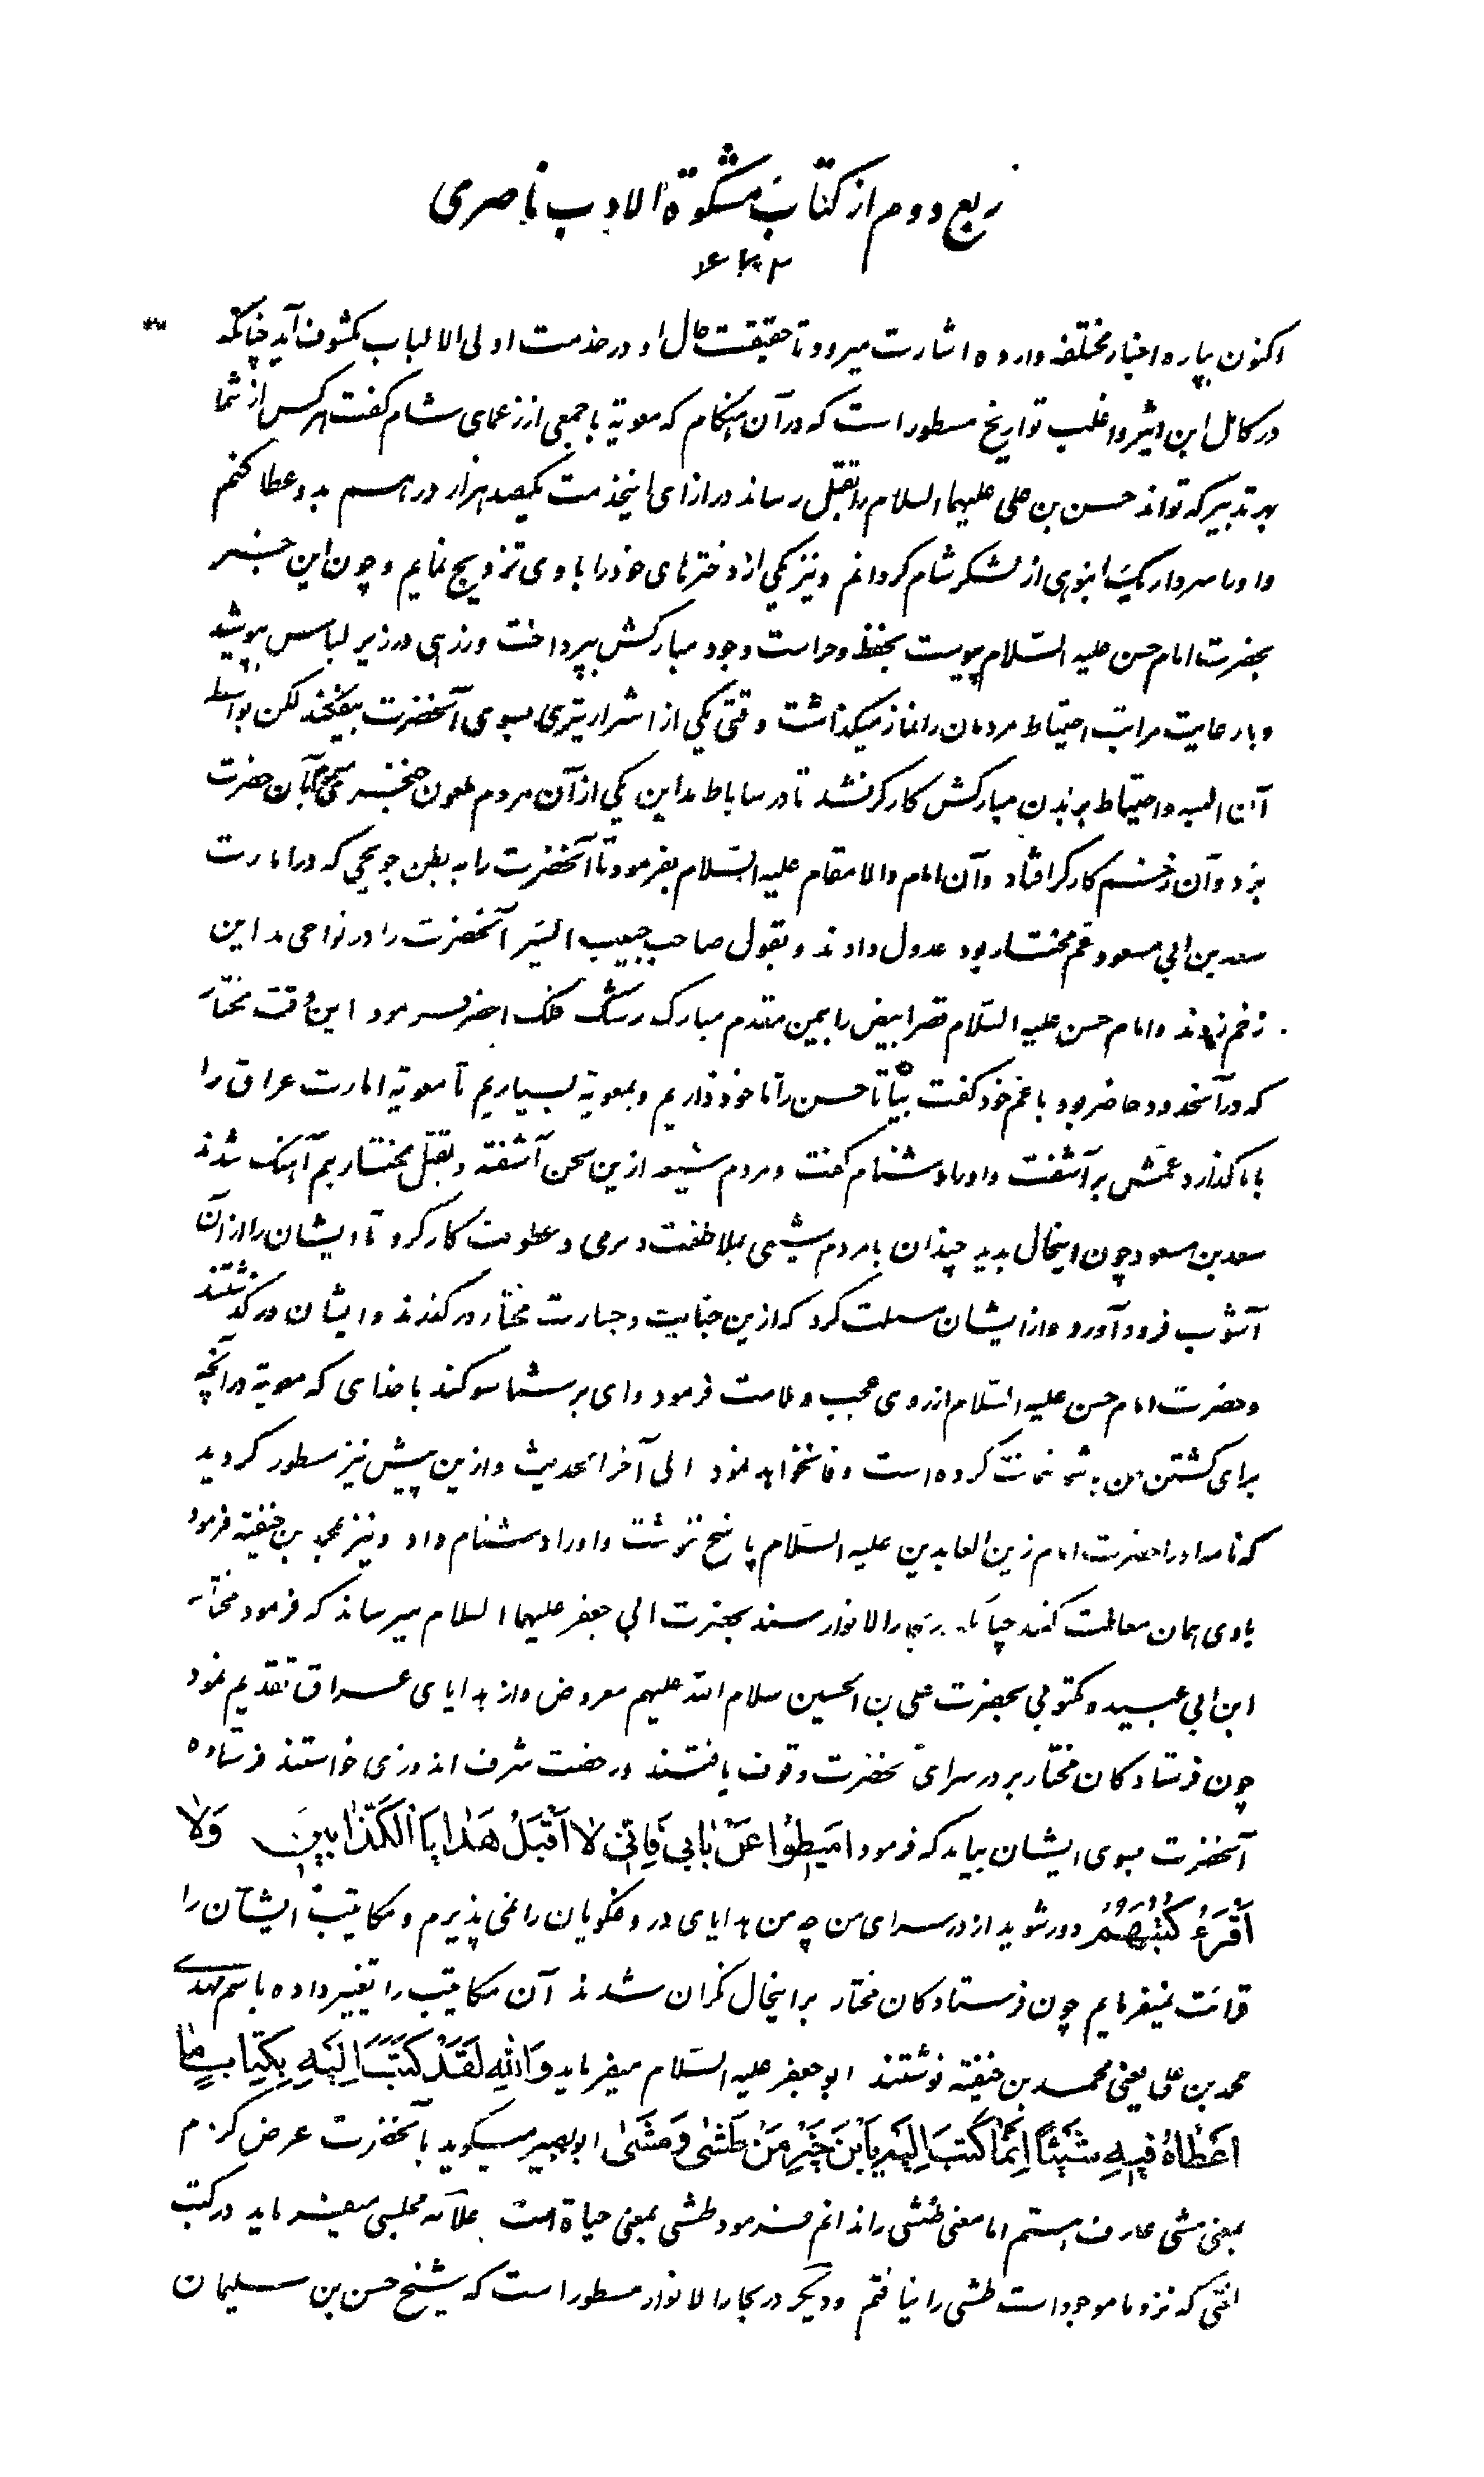 ربع دوم از کتاب مشکوة الادب ناصری
اکنون بپاره اخبار مختلفه وارده اشارت میرود تا حقیقت حال او در خدمت اولی الالباب مکشوف آید چنانکه
در کامل ابن اثیر و اغلب تواریخ مسطور است که در آن هنگام که معویة با جمعی از زعمای شام گفت هر کس از شما
بهر تدبیر که تواند حسن بن علی علیهما السلام را بقتل رساند در ازای اینخدمت یکصد هزار درهم بدو عطا کنم
و او را سردار یک انبوهی از لشکر شام گردانم و نیز یکی از دخترهای خود را با وی تزویج نمایم و چون این خبر
بحضرت امام حسن علیه السّلام پیوست بحفظ و حراست وجود مبارکش بپرداخت و زرهی در زیر لباس بپوشید
و با رعایت مراتب احتیاط مردمان را نماز میگذاشت وقتی یکی از اشرار تیری بسوی آنحضرت بیفکند لکن بواسطه
آن البسه و احتیاط بر بدن مبارکش کارگر نشد تا در ساباط مداین یکی از آن مردم ملعون خنجری مسموم بآن حضرت
بزد و آن زخم کارگر افتاد و آن امام والامقام علیه السّلام بفرمود تا آنحضرت را به بطن جریحی که در امارت
سعد بن ابی مسعود عم مختار بود عدول دادند و بقول صاحب حبیب السّیر آنحضرت را در نواحی مداین
زخم زدند و امام حسن علیه السّلام قصر ابیض را بیمن مقدم مبارک رشگ فلک اخضر فرمود این وقت مختار
که در آنحدود حاضر بود با عم خود گفت بیا تا حسن را ماخوذ داریم و بمعویة بسپاریم تا معویة امارت عراق را
با ما گذارد عمّش بر آشفت و او را دشنام گفت و مردم شیعه ازین سخن آشفته و بقتل مختار هم آهنک شدند
سعد بن مسعود چون اینحال بدید چندان با مردم شیعی بملاطفت و نرمی و عطوفت کار کرد تا ایشان را از آن
آشوب فرود آورد و از ایشان مسئلت کرد که ازین جنایت و جسارت مختار درگذرند و ایشان درگذشتند
و حضرت امام حسن علیه السّلام از روی عجب و ملامت فرمود وای بر شما سوگند با خدای که معویة در آنچه
برای کشتن من به شما ضمانت کرده است وفا نخواهد نمود الی آخر الحدیث و ازین پیش نیز مسطور گردید
که نامه او را حضرت امام زین العابدین علیه السّلام پاسخ ننوشت و او را دشنام داد و نیز محمد بن حنفیّه فرمود
با وی همان معاملت کنند چنانکه در بحار الانوار سند بحضرت ابی جعفر علیهما السلام میرساند که فرمود مختار
ابن ابی عبیده مکتوبی بحضرت علی بن الحسین سلام الله علیهم معروض و از هدایای عراق تقدیم نمود
چون فرستادگان مختار بر در سرای آنحضرت وقوف یافتند و رخصت شرف اندوزی خواستند فرستاده
آنحضرت بسوی ایشان بیامد که فرمود امَیِطُوا عَنْ بٰابی فَاِنّی لٰا اَقْبَلُ هَدٰایَا الْکَذّٰابینَ وَلٰا
اَقْرَءُ کُتُبَهُمْ دور شوید از در سرای من چه من هدایای دروغگویان را نمی پذیرم و مکاتیب ایشان را
قرائت نمیفرمایم چون فرستادگان مختار بر اینحال نگران شدند آن مکاتیب را تغییر داده باسم مهدی
محمد بن علی یعنی محمد بن حنفیّه نوشتند ابو جعفر علیه السّلام میفرماید وَاللهِ لَقَدْ کَتَبَ اِلَیْهِ بِکِتٰابٍ مٰا
اَعْطٰاهُ فیهِ شَیْئًا اِنَّمٰا کَتَبَ اِلَیْهِ یَابْنَ خَیْرِ مَنْ طَشٰی وَمَشٰی ابو بصیر میگوید بآنحضرت عرض کردم
بمعنی مشی عارف هستم اما معنی طشی را ندانم فرمود طشی بمعنی حیاة است علّامه مجلسی میفرماید در کتب
لغتی که نزد ما موجود است طشی را نیافتم و دیگر در بحار الانوار مسطور است که شیخ حسن بن سلیمان